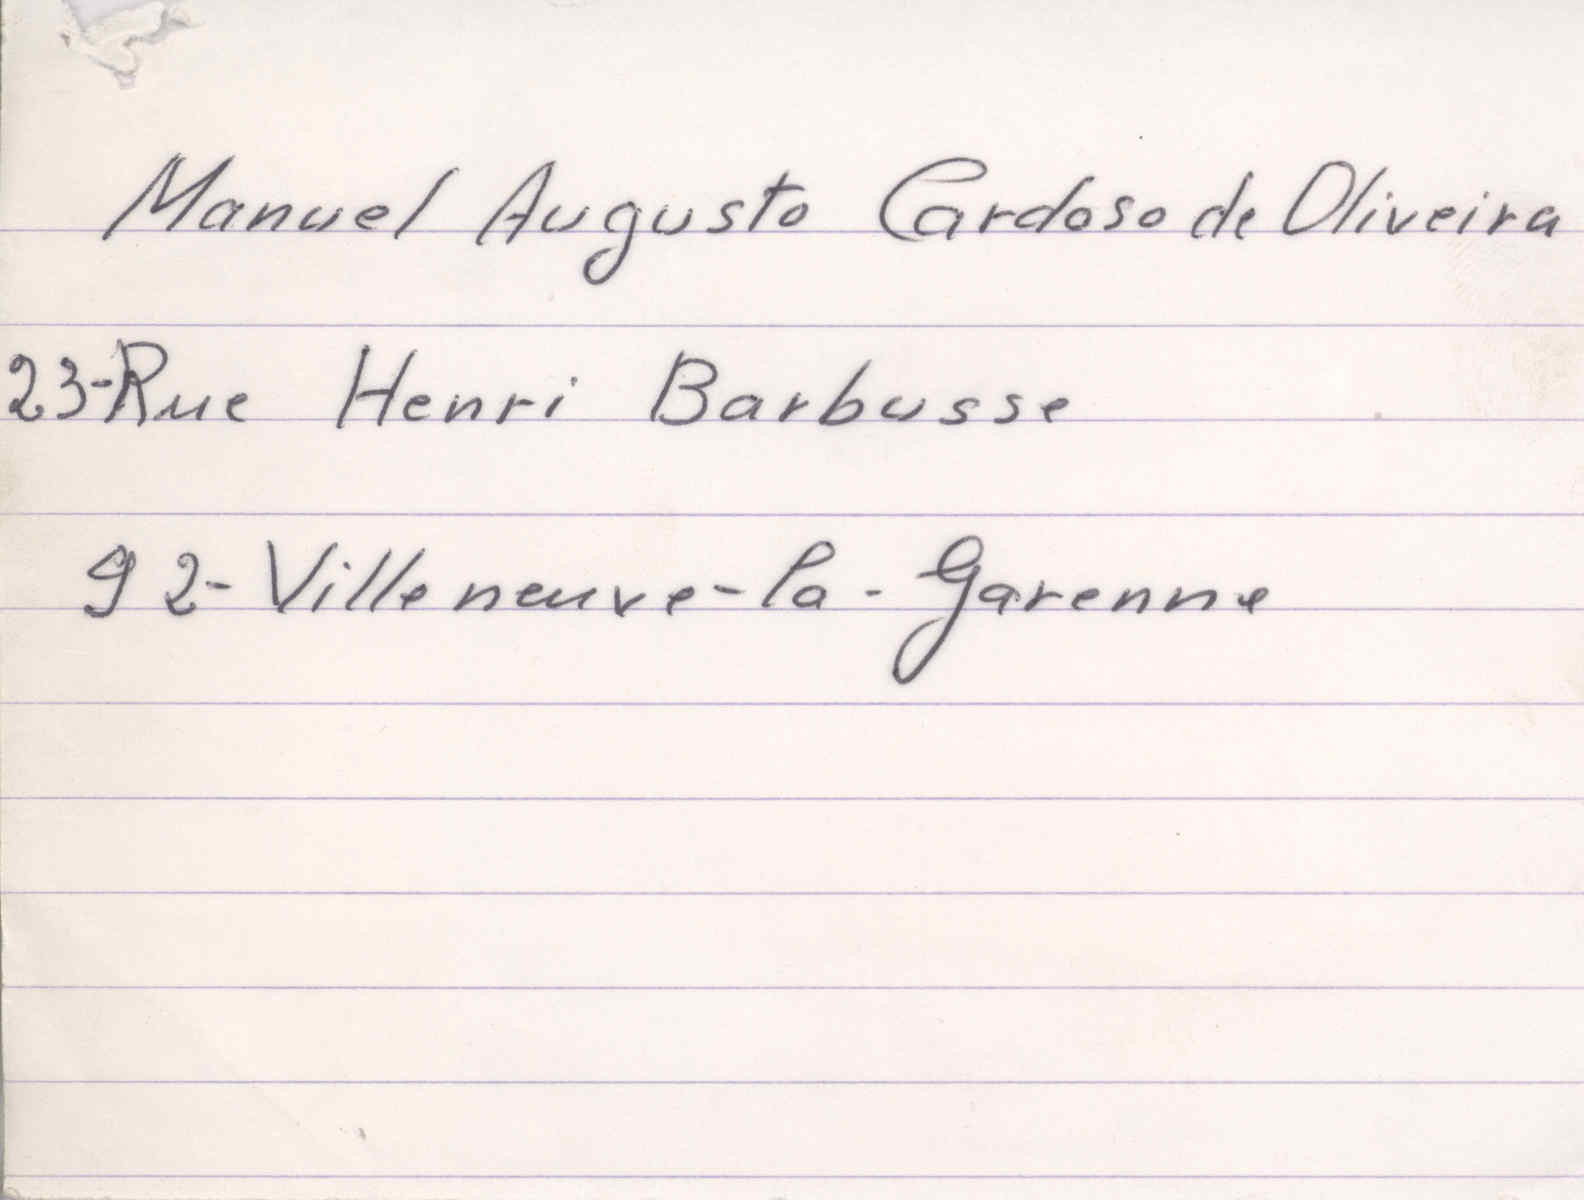 Manuel Augusto Cardoso de Oliveira
23-Rue Henri Barbusse
92-Villeneuve-la-Garenne